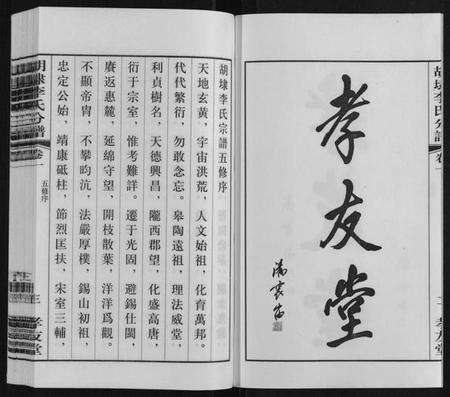 胡埭李氏分譜 卷一
二 孝友堂
孝友堂
胡埭李氏宗譜五修序
天地玄黃，宇宙洪荒，人文始祖，化育萬邦。
代代繁衍，勿敢念忘。皋陶遠祖，理法威堂，
利貞樹名，天德興昌，隴西郡望，化盛高唐，
衍于宗室，惟考難詳。遷于光固，避錫仕閩，
賡返惠麓，延綿守望，開枝散葉，洋洋爲觀。
不顯帝胄，不攀昀沆，法嚴厚樸，錫山初祖，
忠定公始，靖康砥柱，節烈匡扶，宋室三輔，
胡埭李氏分譜 卷一 五修序
三 孝友堂